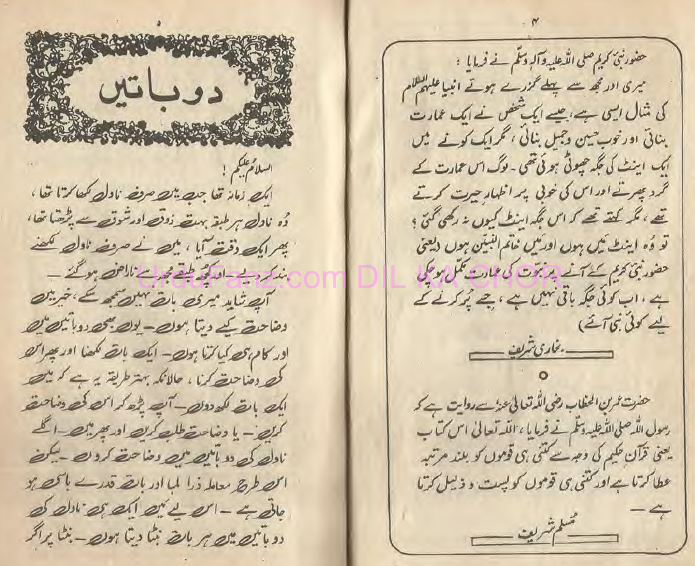 ۴
حضور نبی کریم صلی اللہ علیہ وآلہ وسلم نے فرمایا :
میری اور مجھ سے پہلے گزرے ہوئے انبیا علیہم السلام
کی مثال ایسی ہے، جیسے ایک شخص نے ایک عمارت
بنائی اور خوب حسین و جمیل بنائی، مگر ایک کونے میں
ایک اینٹ کی جگہ چھوٹی ہوئی تھی۔ لوگ اس عمارت کے
گرد پھرتے اور اس کی خوبی پر اظہارِ حیرت کرتے
تھے، مگر کہتے تھے کہ اس جگہ اینٹ کیوں نہ رکھی گئی ؟
تو وہ اینٹ میں ہوں اور میں خاتم النبیین ہوں (یعنی
حضور نبی کریم کے آنے پر نبوت کی عمارت مکمل ہو چکی
ہے، اب کوئی جگہ باقی نہیں ہے، جسے پُر کرنے کے
لیے کوئی نبی آئے)
بخاری شریف
حضرت عمر بن الخطاب رضی اللہ تعالیٰ عنہ سے روایت ہے کہ
رسول اللہ صلی اللہ علیہ وسلم نے فرمایا، اللہ تعالیٰ اس کتاب
یعنی قرآن حکیم کی وجہ سے کتنی ہی قوموں کو بلند مرتبہ
عطا کرتا ہے اور کتنی ہی قوموں کو پست و ذلیل کرتا
ہے ۔
مسلم شریف
۵
دو باتیں
السلام علیکم !
ایک زمانہ تھا جب میں صرف ناول لکھا کرتا تھا،
وہ ناول ہر طبقہ بہت ذوق اور شوق سے پڑھتا تھا،
پھر ایک وقت آیا، میں نے صرف ناول لکھنے
ناراض ہو گئے ۔
آپ شاید میری بات نہیں سمجھ سکے، خیر میں
وضاحت کیے دیتا ہوں۔ یوں بھی دو باتیں میں
اور کام ہی کیا کرتا ہوں۔ ایک بات لکھنا اور پھر اس
کی وضاحت کرنا، حالانکہ بہتر طریقہ یہ ہے کہ میں
ایک بات لکھ دوں۔ آپ پڑھ کر اس کی وضاحت
کریں۔ یا وضاحت طلب کریں اور پھر میں۔ اگلے
ناول کی دو باتیں میں وضاحت کروں۔ لیکن
اس طرح معاملہ ذرا لمبا اور بات قدرے باسی ہو
جاتی ہے۔ اس لیے میں ایک ہی ناول کی
دو باتیں میں ہر بات نبٹا دیتا ہوں۔ نبٹا پر اگر
UrduFanz.com DIL KA CHOR